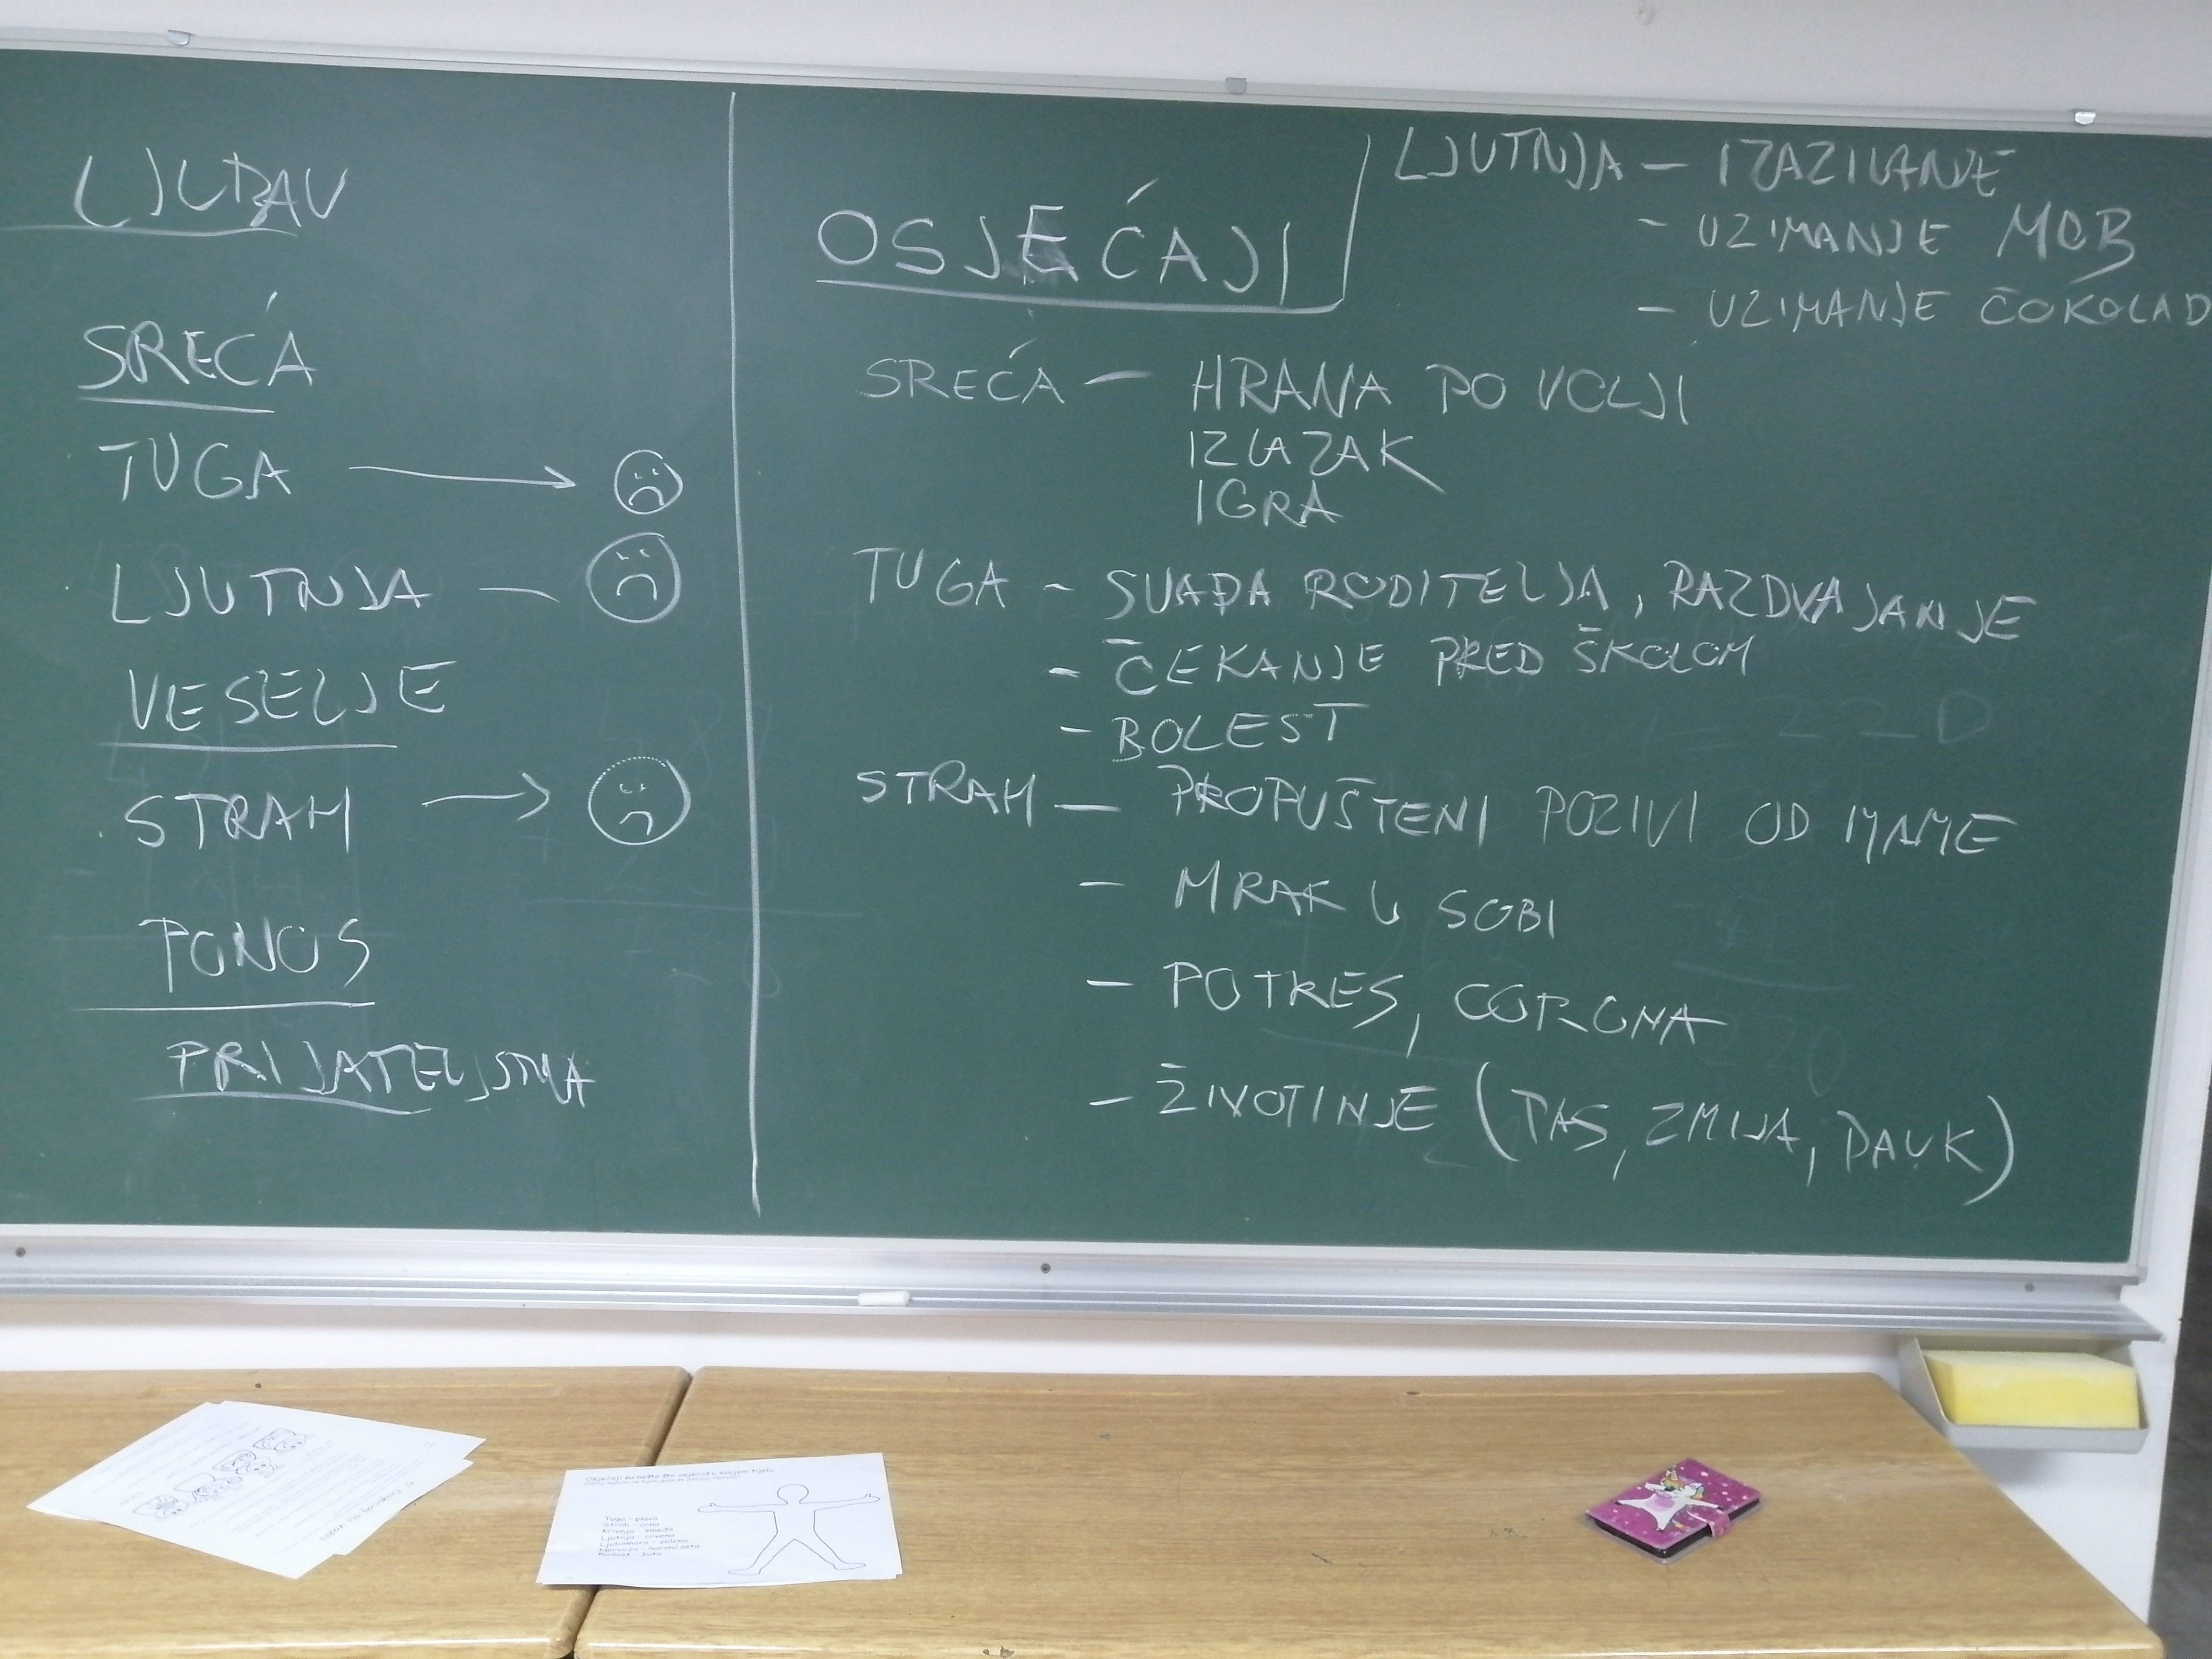 LJUBAV
SREĆA
TUGA
LJUTNJA
VESELJE
STRAH
PONOS
PRIJATELJSTVA
OSJEĆAJI
LJUTNJA - IZAZIVANJE
- UZIMANJE MOB
- UZIMANJE ČOKOLAD
SREĆA - HRANA PO VOLJI
IZLAZAK
IGRA
TUGA - SVAĐA RODITELJA, RAZDVAJANJE
- ČEKANJE PRED ŠKOLOM
- BOLEST
STRAH - PROPUŠTENI POZIVI OD MAME
- MRAK U SOBI
- POTRES, CORONA
- ŽIVOTINJE (PAS, ZMIJA, PAUK)
Osjećaji su nešto što osjećaš u svojem tijelu
Tuga - plava
Strah - crna
Krivnja - smeđa
Ljutnja - crvena
Ljubomora - zelena
Nervoza - narančasta
Radost - žuta